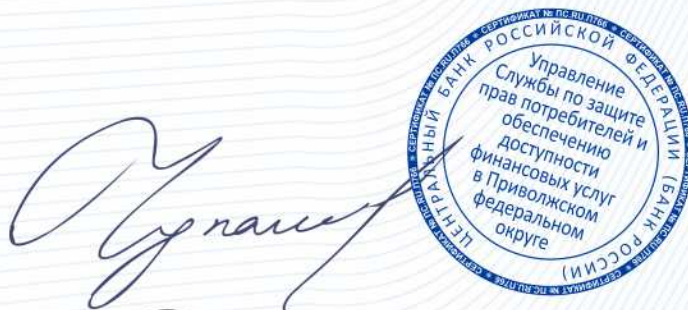 СЕРТИФИКАТ № ПС.RU.П766 * СЕРТИФИКАТ № ПС.RU.П766 * СЕРТИФИКАТ № ПС.RU.П766 * СЕРТИФИКАТ № ПС.RU.П766
ЦЕНТРАЛЬНЫЙ БАНК РОССИЙСКОЙ ФЕДЕРАЦИИ (БАНК РОССИИ)
Управление
Службы по защите
прав потребителей и
обеспечению
доступности
финансовых услуг
в Приволжском
федеральном
округе